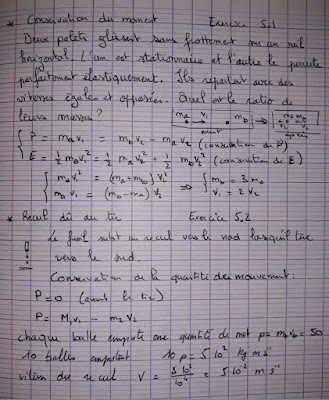 * Conservation du moment Exercice 5.1
Deux palets glissent sans frottement sur un rail
horizontal. L'un est stationnaire et l'autre le percute
parfaitement élastiquement. Ils repartent avec des
vitesses égales et opposées. Quel est le ratio de
leurs masses?
avant
P = mₐv₁ = m_b v₂ - mₐ v₂ (conservation de P)
E = ½ mₐv₁² = ½ mₐ v₂² + ½ m_b v₂² (conservation de E)
mₐv₁² = (mₐ+m_b) v₂² ⇒ m_b = 3mₐ
mₐ v₁ = (m_b - mₐ) v₂ v₁ = 2 v₂
* Recul dû au tir Exercice 5.2
Le fusil subit un recul vers le nord lorsqu'il tire
vers le sud.
Conservation de la quantité des mouvement:
P = 0 (avant le tir)
P = M₁v₁ - m₂ v₂
chaque balle emporte une quantité de mvt p = m₂v₂ = 50
10 balles emportent 10 p = 5 10² kg m s⁻¹
vitesse du recul V = 5 10² / 10⁴ = 5 10⁻² m s⁻¹